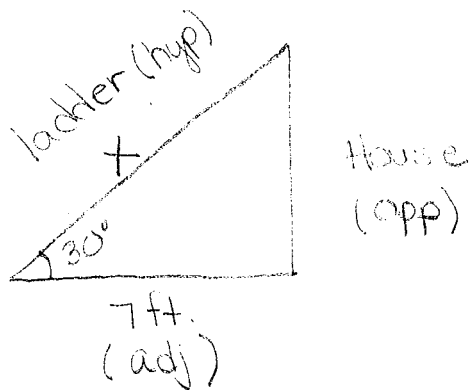 ladder (hyp)
x
House
(opp)
30°
7 ft.
(adj)